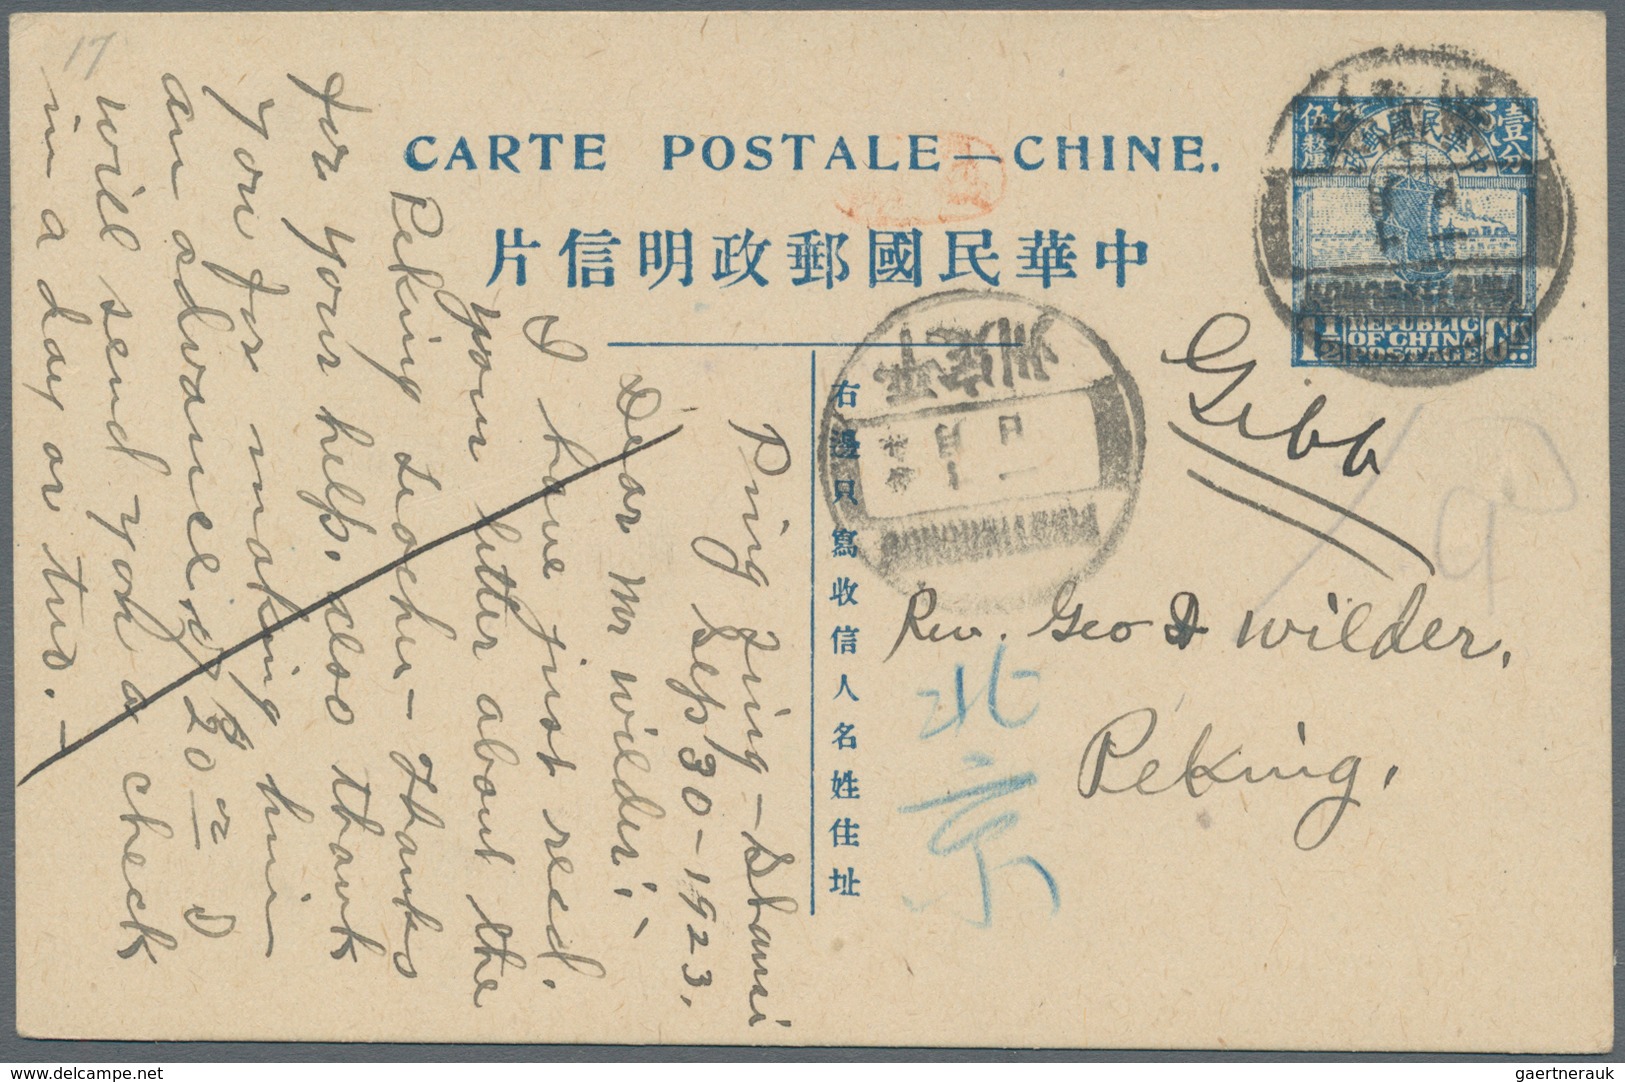 17
CARTE POSTALE—CHINE.
片信明政郵國民華中
伍釐 壹分
政郵國民華中
1 1/2 REPUBLIC OF CHINA POSTAGE
右邊只寫收信人名姓住址
Gibb
Rev. Geo D Wilder,
Peking.
北京
Ping Ting - Shansi
Sep 30-1923.
Dear Mr Wilder:
I have just recd.
your letter about the
Peking - Thanks
for your help. also thank
you for making him
an advance of $20
will send you a check
in a day or two. -
gaertnerauk